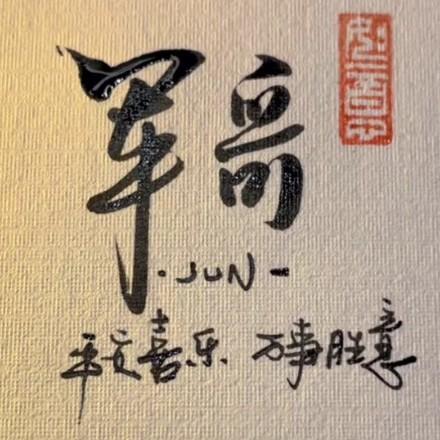 军哥
·JUN-
平安喜乐 万事胜意